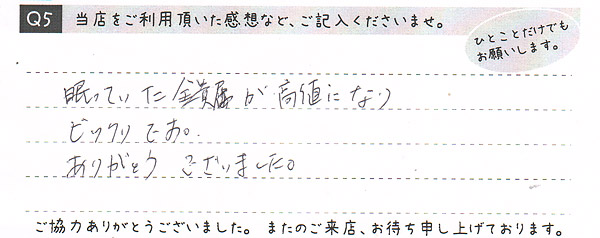 Q5 当店をご利用頂いた感想など、ご記入くださいませ。
ひとことだけでも
お願いします。
眠っていた金貴属が高値になり
ビックリです。
ありがとうございました。
ご協力ありがとうございました。 またのご来店、お待ち申し上げております。